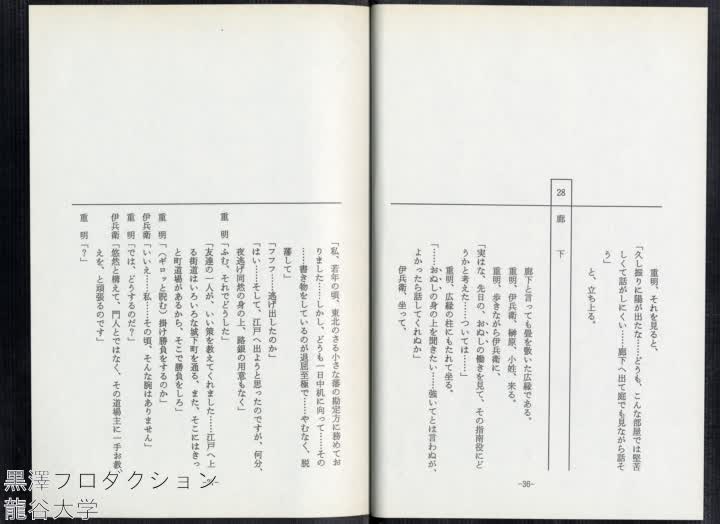 重明、それを見ると、
「久し振りに陽が出たな……どうも、こんな部屋では堅苦
しくて話がしにくい……廊下へ出て庭でも見ながら話そ
う」
と、立ち上る。
28 廊下
廊下と言っても畳を敷いた広縁である。
重明、伊兵衛、榊原、小姓、来る。
重明、歩きながら伊兵衛に、
「実はな、先日の、おぬしの働きを見て、その指南役にど
うかと考えた……ついては……」
重明、広縁の柱にもたれて坐る。
「……おぬしの身の上を聞きたい……強いてとは言わぬが、
よかったら話してくれぬか」
伊兵衛、坐って、
-36-
「私、若年の頃、東北のさる小さな藩の勘定方に務めてお
りました……しかし、どうも一日中机に向って……その
……書き物をしているのが退屈至極で……やむなく、脱
藩して」
「フフフ……逃げ出したのか」
「はい……そして、江戸へ出ようと思ったのですが、何分、
夜逃げ同然の身の上、路銀の用意もなく」
重明「ふむ、それでどうした」
「友達の一人が、いい策を教えてくれました……江戸へ上
る街道はいろいろな城下町を通る、また、そこにはきっ
と町道場があるから、そこで勝負をしろ」
重明「（ギロッと睨む）掛け勝負をするのか」
伊兵衛「いいえ……私……その頃、そんな腕はありません」
重明「では、どうするのだ?」
伊兵衛「悠然と構えて、門人とではなく、その道場主に一手お教
えを、と頑張るのです」
重明「?」
黒澤プロダクション
龍谷大学